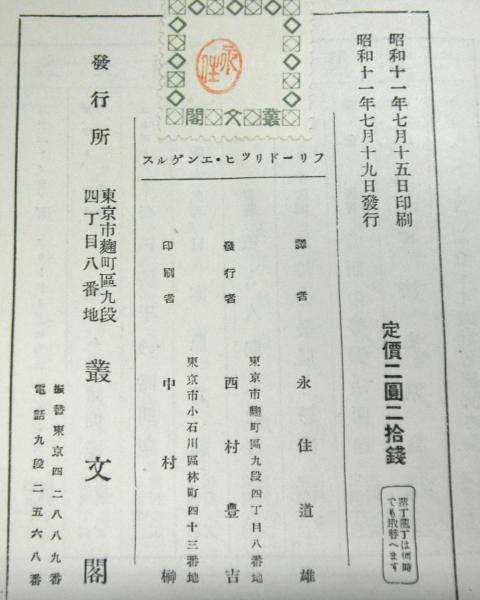 昭和十一年七月十五日印刷
昭和十一年七月十九日發行
定價二圓二拾錢
落丁亂丁は何時
でも取替へます
フリードリッヒ・エンゲルス
譯者 永住道雄
東京市麴町區九段四丁目八番地
發行者 西村豊吉
東京市小石川區林町四十三番地
印刷者 中村榊
叢文閣
永住
發行所
東京市麴町區九段
四丁目八番地
叢文閣
振替東京四二八八九番
電話九段二五六八番